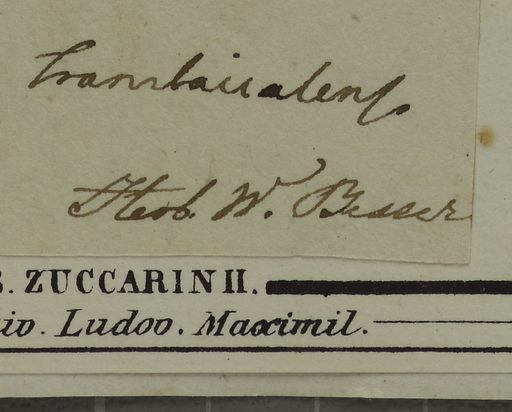 transbaicalens
Herb. W. Besser
S. ZUCCARINII.
iv. Ludov. Maximil.